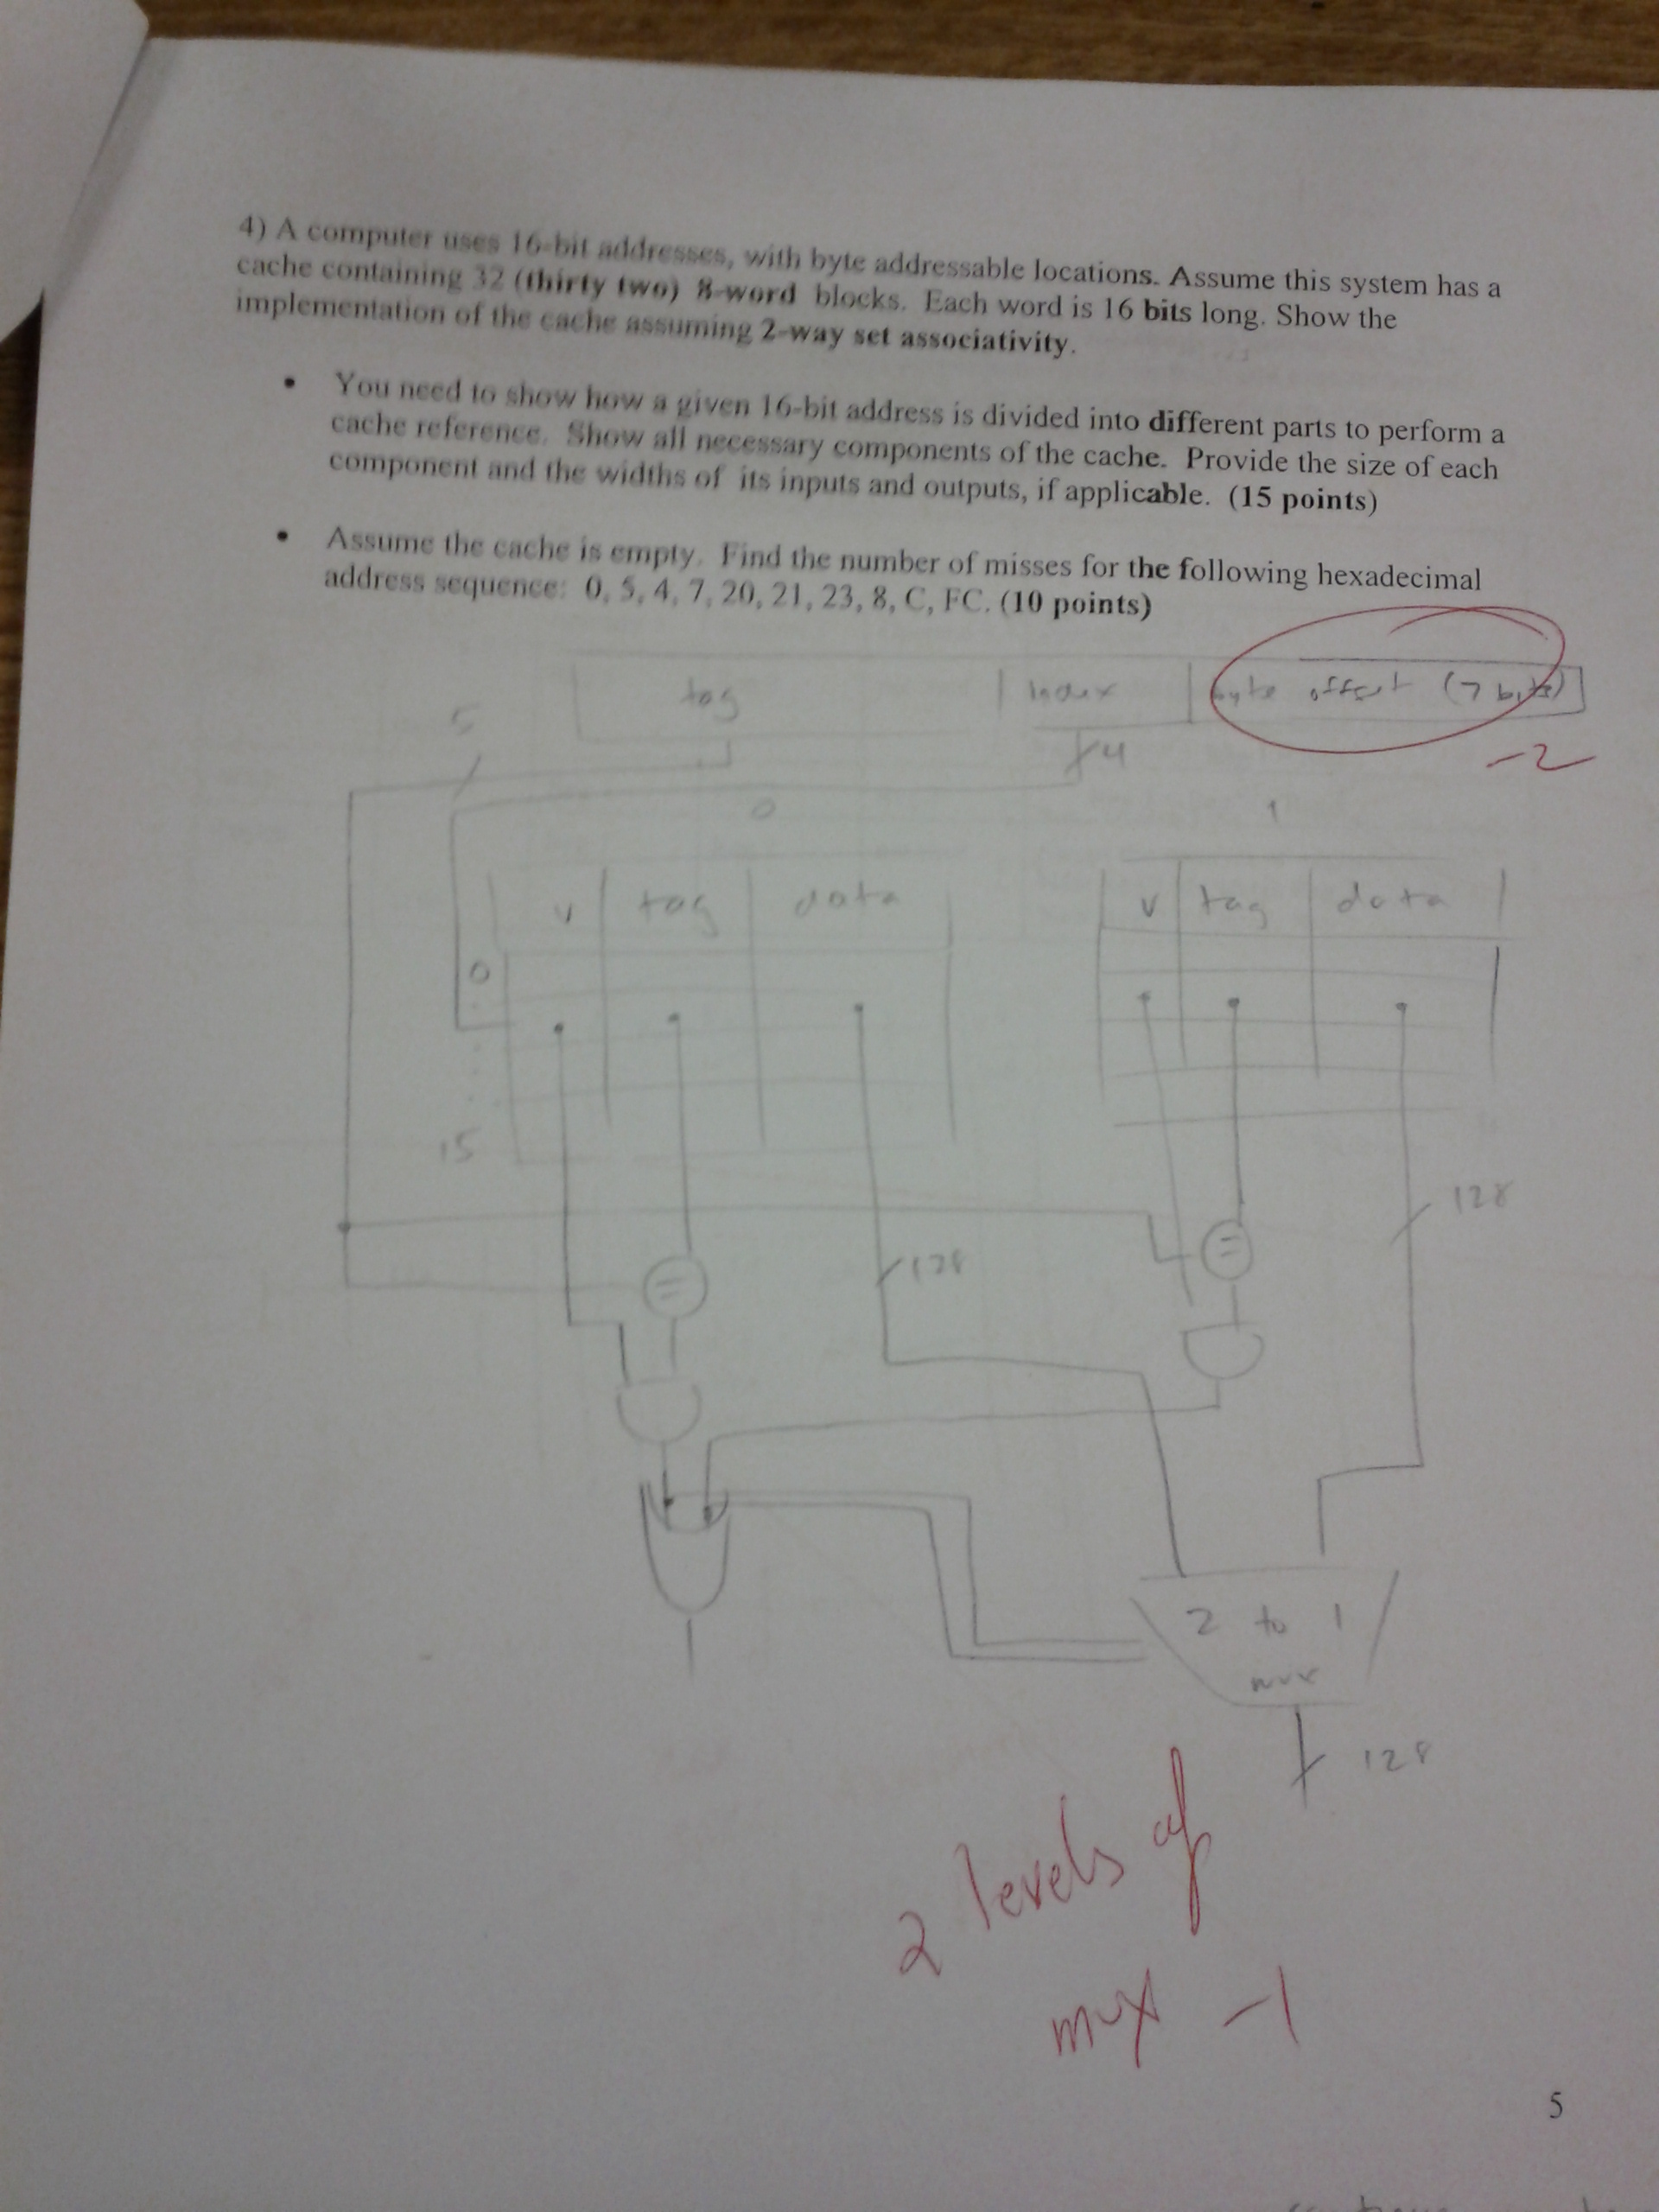 4) A computer uses 16-bit addresses, with byte addressable locations. Assume this system has a
cache containing 32 (thirty two) 8-word blocks. Each word is 16 bits long. Show the
implementation of the cache assuming 2-way set associativity.
• You need to show how a given 16-bit address is divided into different parts to perform a
cache reference. Show all necessary components of the cache. Provide the size of each
component and the widths of its inputs and outputs, if applicable. (15 points)
• Assume the cache is empty. Find the number of misses for the following hexadecimal
address sequence: 0, 5, 4, 7, 20, 21, 23, 8, C, FC. (10 points)
tag index byte offset (7 bits)
-2
5 4
0 1
v tag data v tag data
0
15
128
= =
128
2 to 1
mux
128
2 levels of
mux -1
5